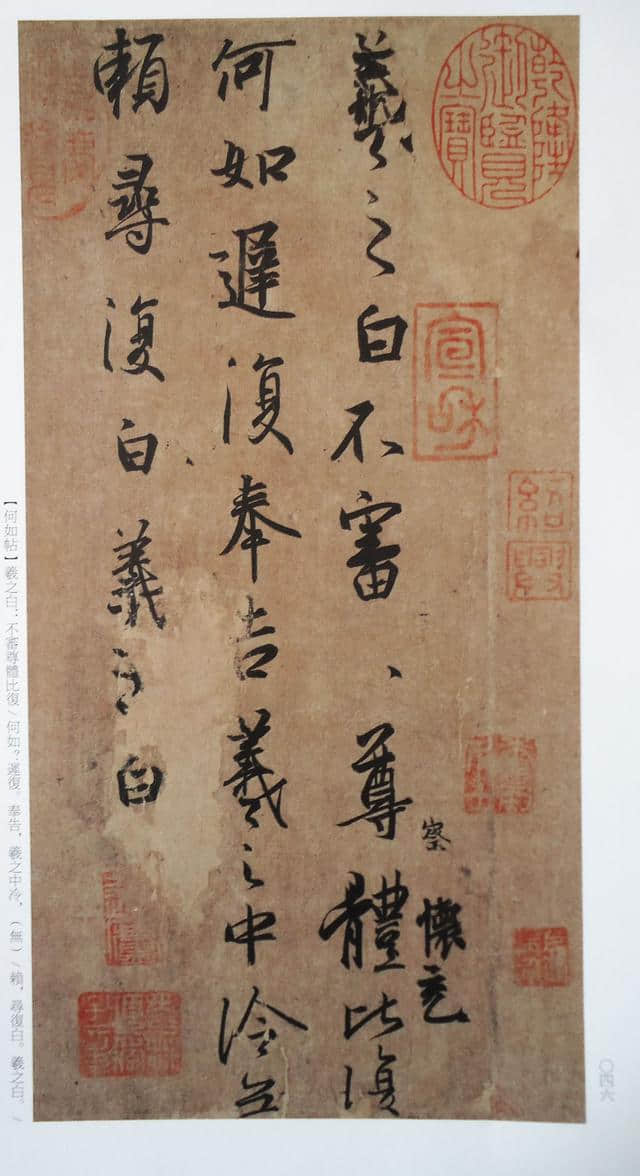 乾隆御覽之寶
宣和
紹興
察 懷充
羲之白不審、尊體比復
何如遲復奉告羲之中冷無
賴尋復白羲之白
【何如帖】羲之白：不審尊體比復/何如？遲復。奉告，羲之中冷，（無）/賴，尋復白。羲之白。/
〇四六